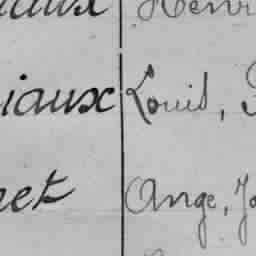 Henri
iaux Louis,
net Ange, Jo